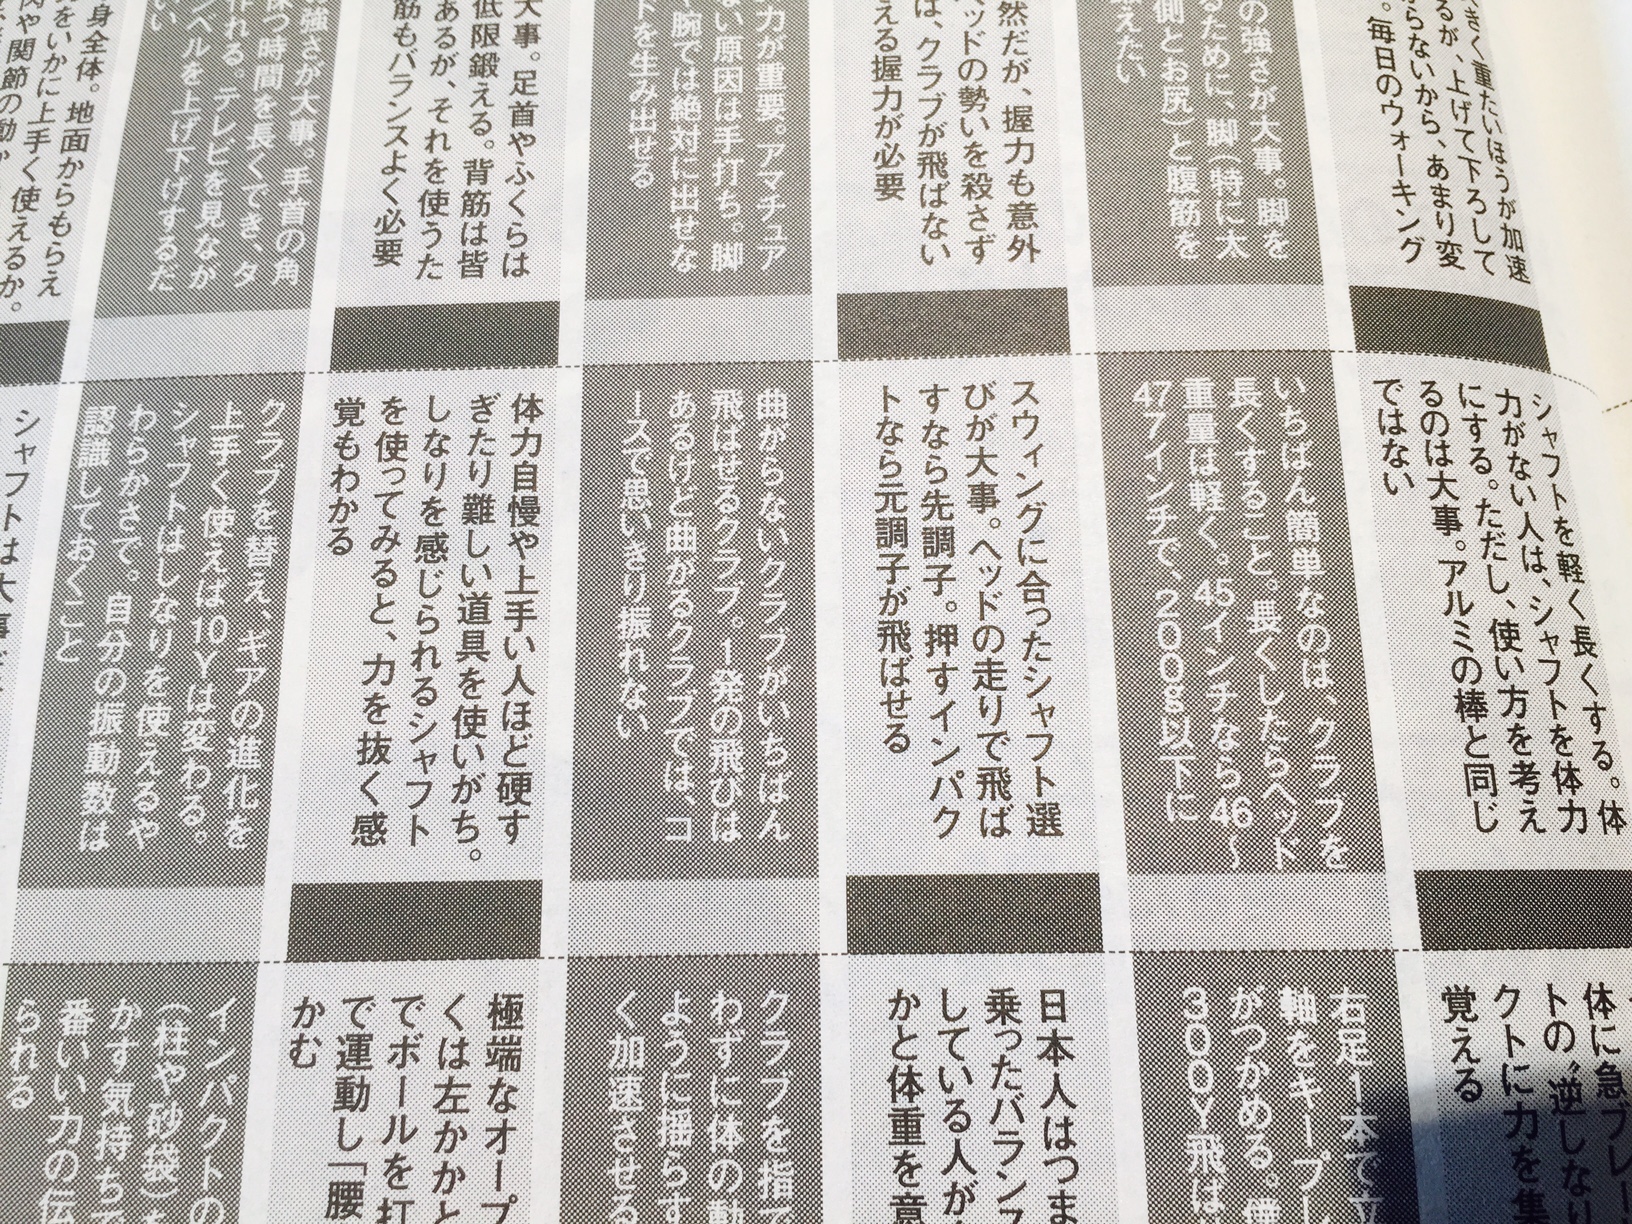 きく重たいほうが加速
るが、上げて下ろして
らないから、あまり変
。毎日のウォーキング
の強さが大事。脚を
るために、脚(特に太
側とお尻)と腹筋を
えたい
然だが、握力も意外
ッドの勢いを殺さず
は、クラブが飛ばない
える握力が必要
力が重要。アマチュア
ない原因は手打ち。脚
腕では絶対に出せな
トを生み出せる
大事。足首やふくらは
低限鍛える。背筋は皆
あるが、それを使うた
筋もバランスよく必要
強さが大事。手首の角
つ時間を長くでき、タ
れる。テレビを見なが
ベルを上げ下げするだ
い
身全体。地面からもらえ
をいかに上手く使えるか。
や関節の動か
シャフトを軽く長くする。体
力がない人は、シャフトを体力
にする。ただし、使い方を考え
るのは大事。アルミの棒と同じ
ではない
いちばん簡単なのは、クラブを
長くすること。長くしたらヘッド
重量は軽く。45インチなら46〜
47インチで、200g以下に
スウィングに合ったシャフト選
びが大事。ヘッドの走りで飛ば
すなら先調子。押すインパク
トなら元調子が飛ばせる
曲がらないクラブがいちばん
飛ばせるクラブ。1発の飛びは
あるけど曲がるクラブでは、コ
ースで思いきり振れない
体力自慢や上手い人ほど硬す
ぎたり難しい道具を使いがち。
しなりを感じられるシャフト
を使ってみると、力を抜く感
覚もわかる
クラブを替え、ギアの進化を
上手く使えば10Yは変わる。
シャフトはしなりを使えるや
わらかさで。自分の振動数は
認識しておくこと
シャフトは大事
体に急ブレー
トの〝逆しなり
クトに力を集
覚える
右足1本で立
軸をキープし
がつかめる。僕
300Y飛ば
日本人はつま
乗ったバランス
している人が
かと体重を意
クラブを指で
わずに体の動
ように揺らす
く加速させる
極端なオープ
くは左かかと
でボールを打
で運動し「腰
かむ
インパクトの
(柱や砂袋)を
かす気持ちで
番いい力の伝
られる